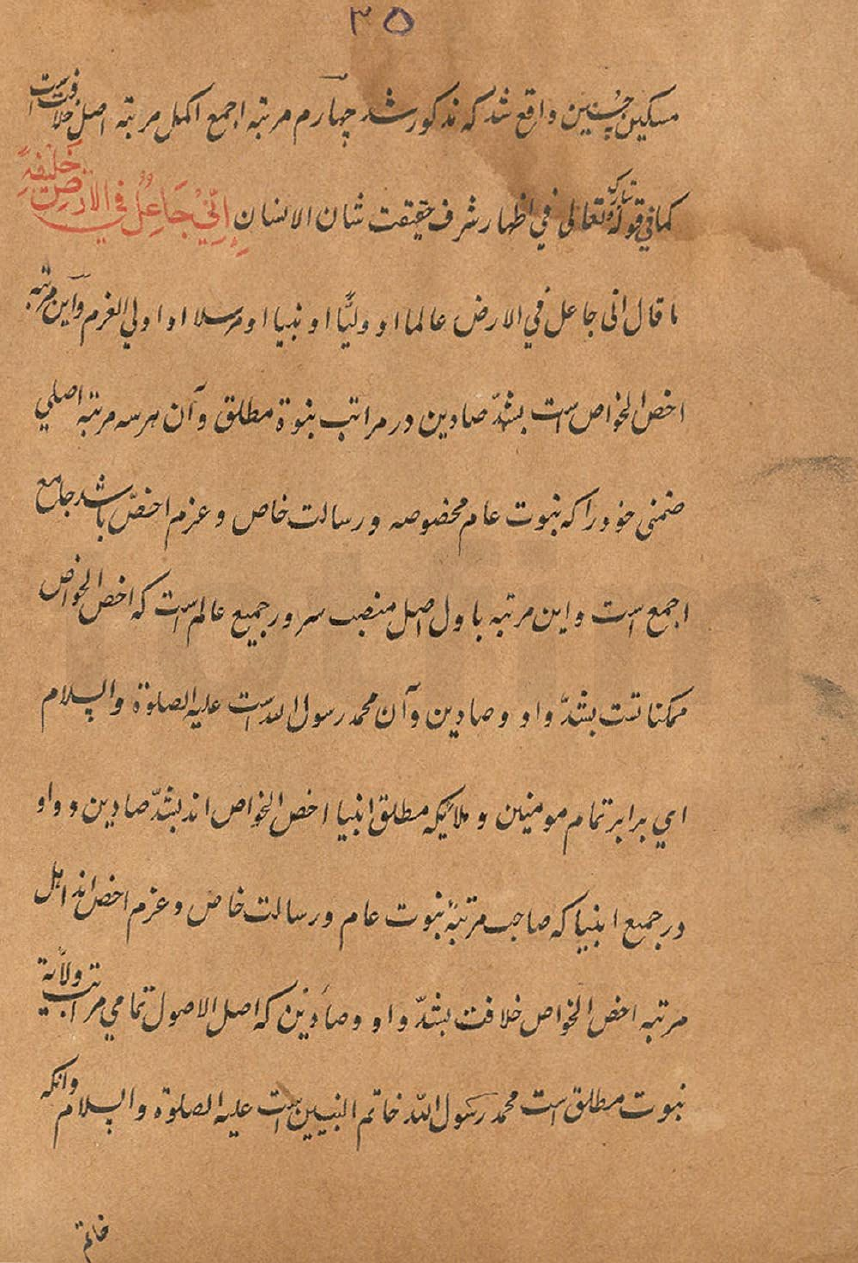 ٣٥
مسکین چنین واقع شد که مذکور شد چهارم مرتبه اجمع اکمل مرتبه اصل خلافت است
کما فی قوله تبارک و تعالی فی اظهار شرف حقیقت شان الانسان اِنِّیْ جَاعِلٌ فی الارض خَلیفةً
ما قال انی جاعل فی الارض عالما او ولیًّا او نبیا او مرسلا او اولی العزم و این مرتبه
اخص الخواص است بشدّ صادین در مراتب نبوة مطلق و آن هر سه مرتبه اصلی
ضمنی خود را که نبوت عام مخصوصه و رسالت خاص و عزم اخصّ باشد جامع
اجمع است و این مرتبه باول اصل منصب سرور جمیع عالم است که اخص الخواص
ممکناتست بشدّ واو و صادین و آن محمد رسول الله است علیه الصلوة والسلام
ای برابر تمام مومنین و ملائکه مطلق انبیا اخص الخواص اند بشدّ صادین و واو
در جمیع انبیا که صاحب مرتبهٔ نبوت عام و رسالت خاص و عزم اخص اند اهل
مرتبه اخص الخواص خلافت بشدّ واو و صادین که اصل الاصول تمامی مراتب ولایة
نبوت مطلق است محمد رسول الله خاتم النبیین است علیه الصلوة والسلام وانکه
خاتم